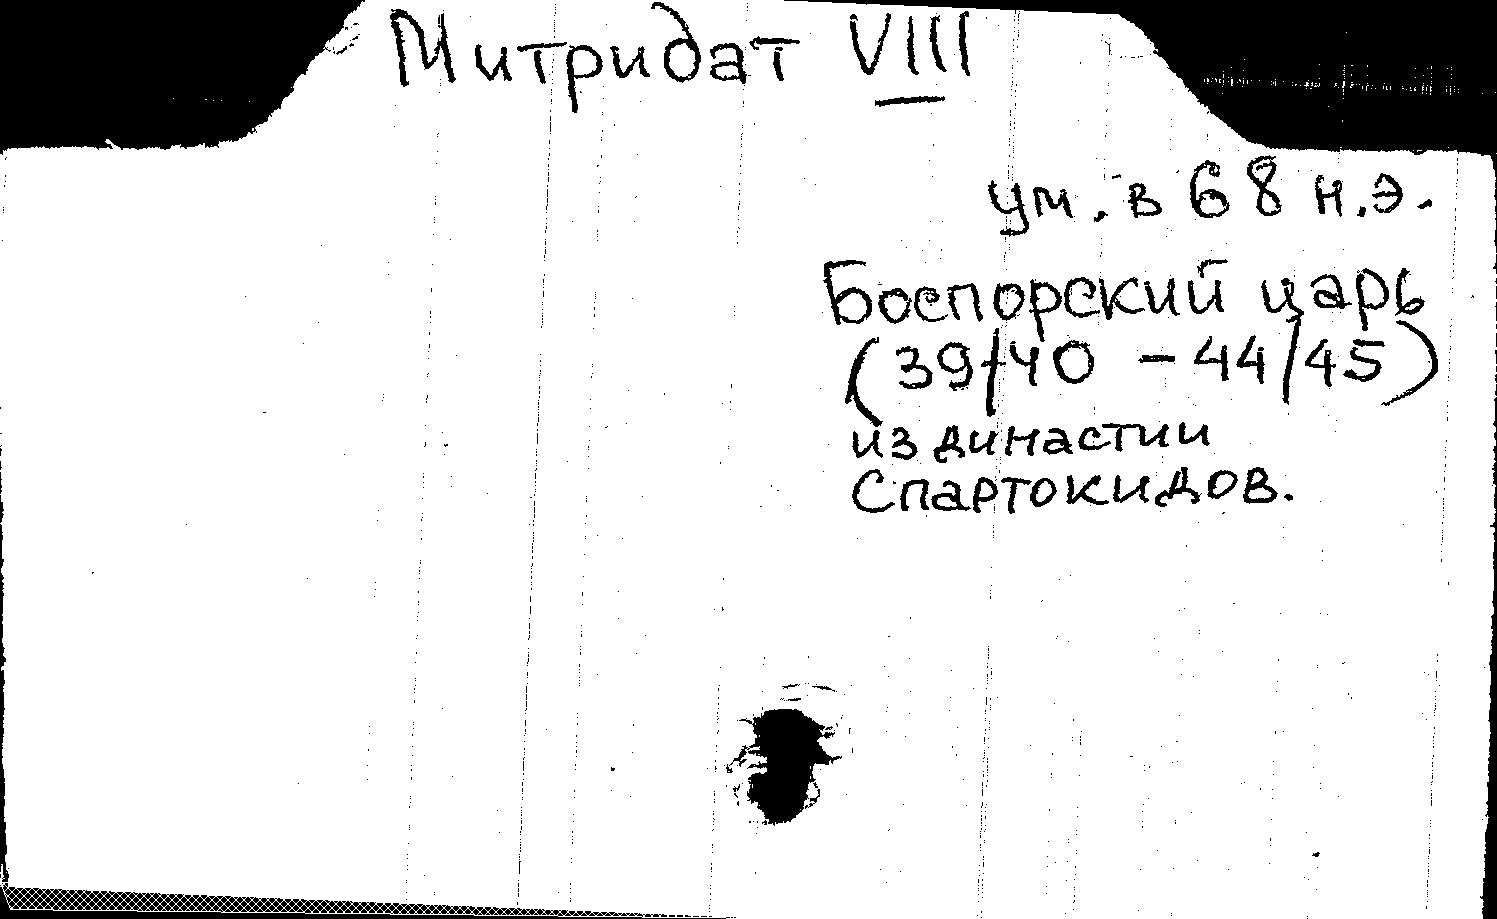 Митридат VIII
ум. в 68 н.э.
Боспорский царь
(39/40 – 44/45)
из династии
Спартокидов.